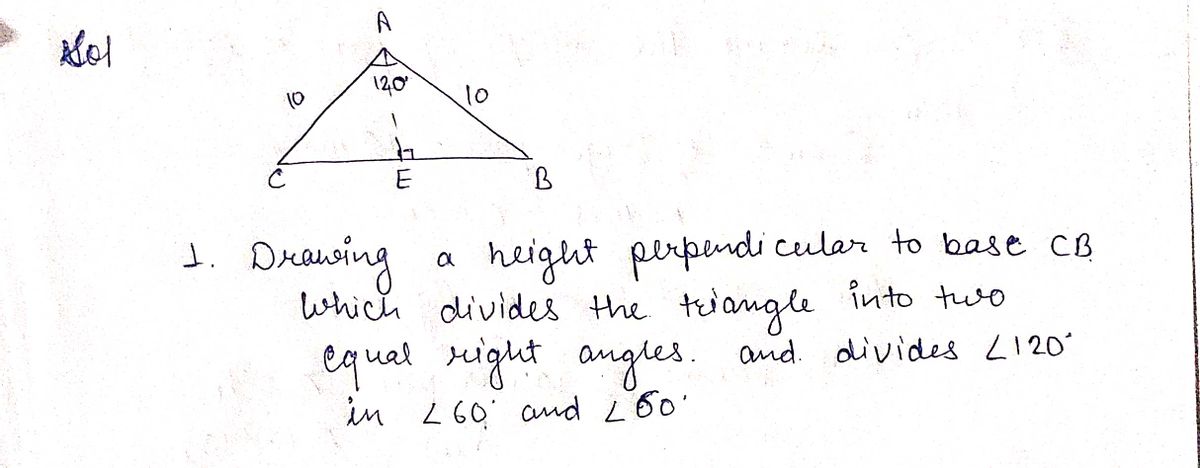 Sol
A
120°
10
10
C
E
B
1. Drawing a height perpendicular to base CB
which divides the triangle into two
equal right angles. and divides ∠120°
in ∠60° and ∠60°